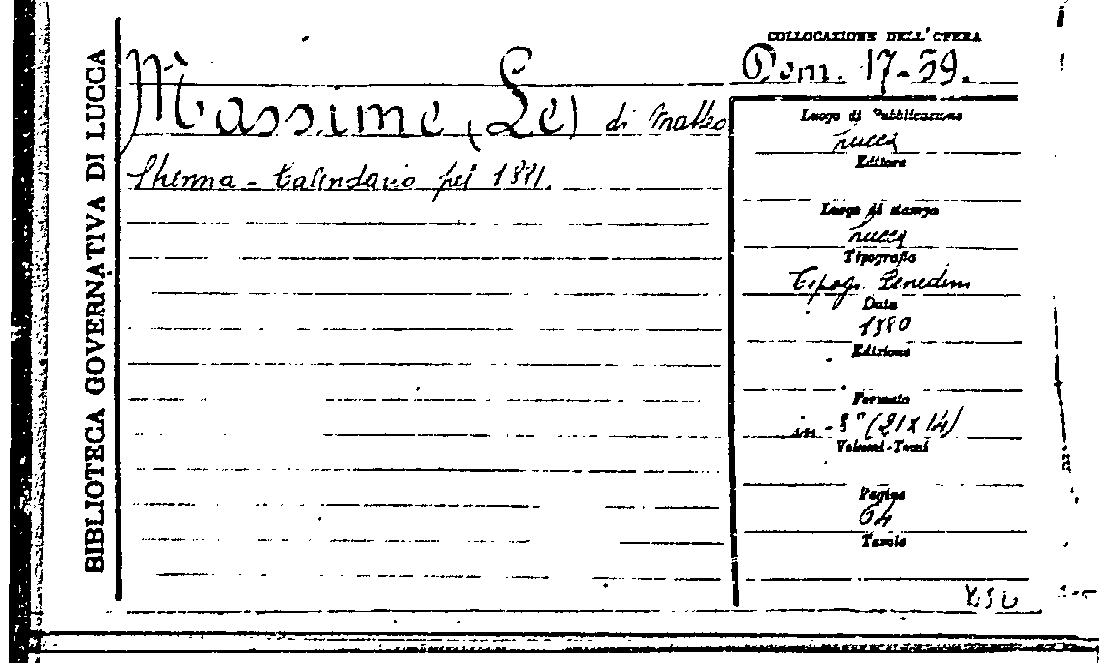 BIBLIOTECA GOVERNATIVA DI LUCCA
COLLOCAZIONE DELL'OPERA
Dom. 17-59.
Massime (Le) di Matteo
- Calendario pel 1881.
Luogo di Pubblicazione
Lucca
Editore
Luogo di stampa
Lucca
Tipografia
Tipogr. Benedini
Data
1880
Edizione
Formato
in - 8° (21 x 14)
Volumi-Tomi
Pagine
64
Tavole